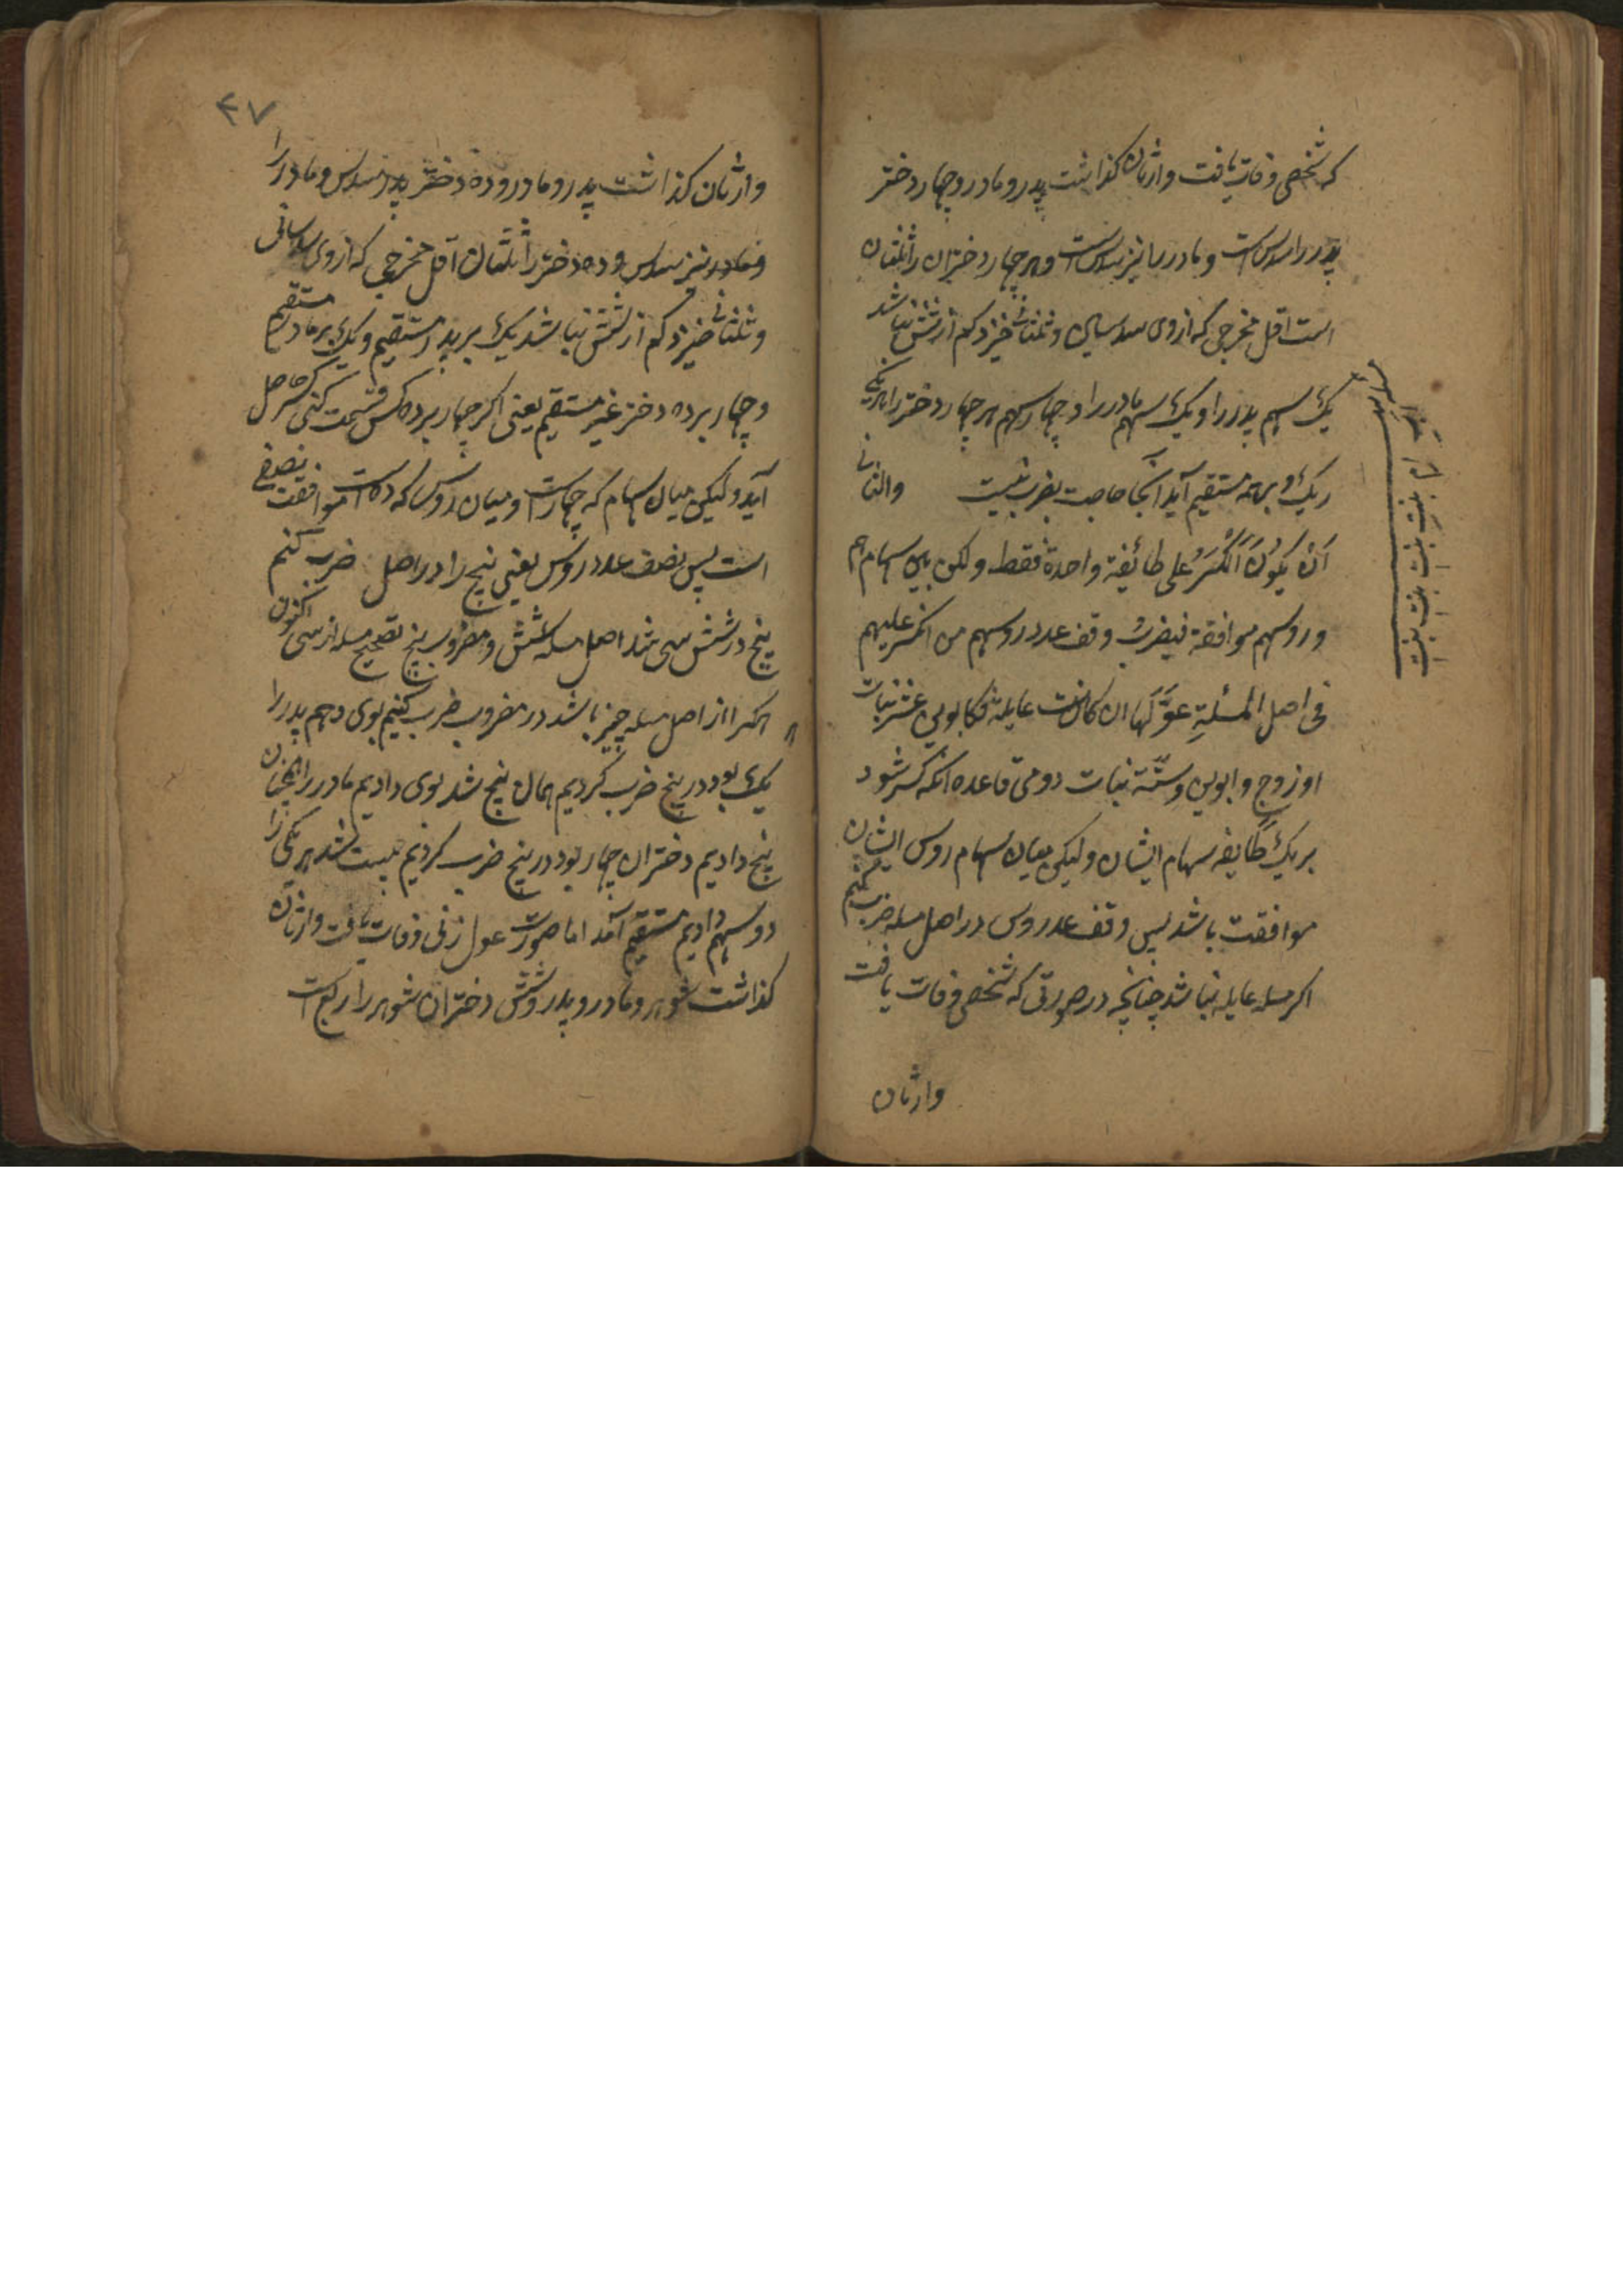 که شخصی وفات یافت وارثان کذاشت پدر و مادر و چهار دختر
پدر را سدس است و مادر را نیز سدس است و هر چهار دختران را ثلثان
است اقل مخرجی که ازوی سدسان و ثلثان خیزد کم از شش نباشد
یک سهم پدر را و یک سهم مادر را و چهار سهم هر چهار دختر را هر یکی
ریک و برهمه مستقیم آید آنجا حاجت بضرب نیست والثانی
اَنْ یَکُونَ الکَسْرُ علی طائفة واحدة فقط ولکن بین سهامهم
و روسهم موافقة فیضرب وفق عدد روسهم من انکسر علیهم
فی اصل المسئلةِ عَوْلَها ان کانت عایلة کابوین عشر بنات
او زوج وابوین وستّة بنات دومی قاعده آنکه کسر شود
بریک طایفه سهام ایشان ولیکن میان سهام روس ایشان
موافقت باشد پس وفق عدد روس در اصل مسله ضرب کنیم
اکر مسله عایله نباشد چنانچه در صورتی که شخصی وفات یافت
وارثان
بنت بنت بنت بنت
۴۷
وارثان کذاشت پدر و مادر و ده دختر پدر سدس و مادر را
و مادر نیز سدس و ده دختر را ثلثان اقل مخرجی که ازوی سدسانی
و ثلثانی خیزد کم از شش نباشد یک بر پدر مستقیم و یک بر مادر مستقیم
و چهار بر ده دختر غیر مستقیم یعنی اکر چهار بر ده کس قسمت کنی کسر حاصل
آید ولیکن میان سهام که چهار است و میان روس که ده است موافقت بنصفی
است پس نصف عدد روس یعنی پنج را در اصل ضرب کنم
پنج در شش سی شد اصل مسله شش و مضروب پنج تصحیح مسله از سی اکنون
هرکرا از اصل مسله چیز باشد در مضروب ضرب کنیم بوی دهم پدر را
یک بود در پنج ضرب کردیم همان پنج شد بوی دادیم مادر را همچنان
پنج دادیم دختران چهار بود در پنج ضرب کردیم بیست شد هر یکی را
دو سهم دادیم مستقیم آمد اما صورت عول زنی وفات یافت وارثان
کذاشت شوهر و مادر و پدر و شش دختران شوهر را ربع است